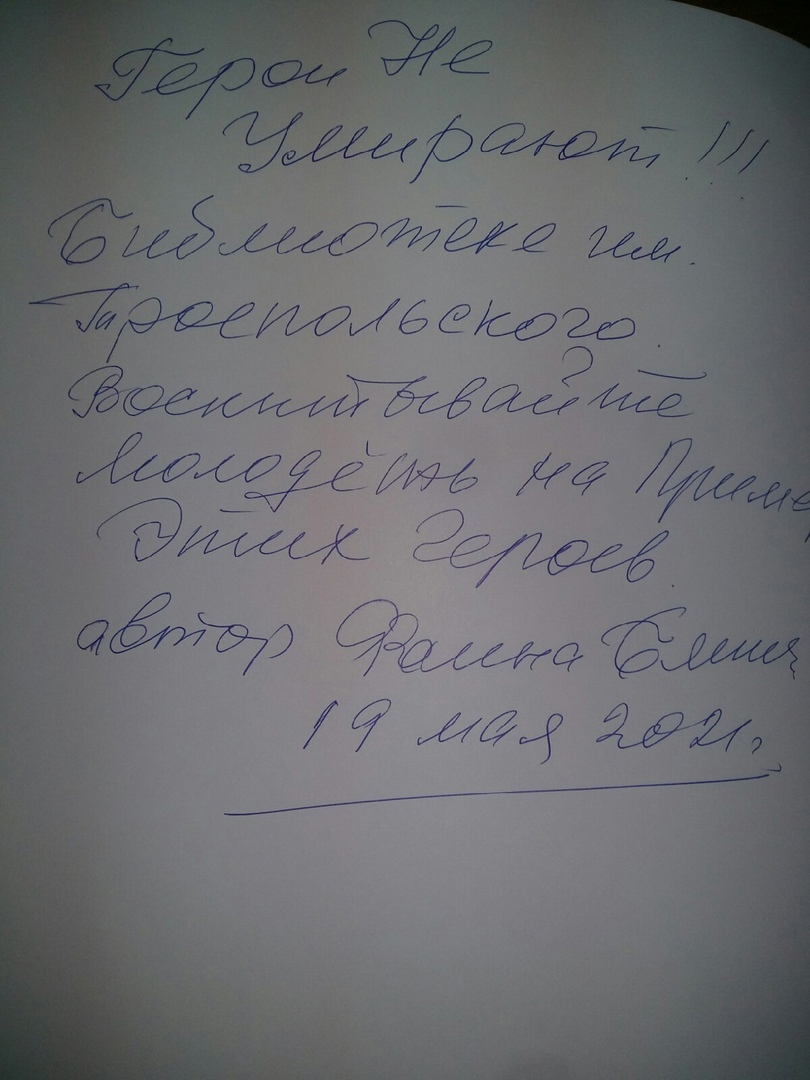 Герои Не
Умирают!!!
Библиотеке им.
Троепольского.
Воспитывайте
молодёжь на Приме
Этих Героев.
автор Фаина
19 мая 2021г.